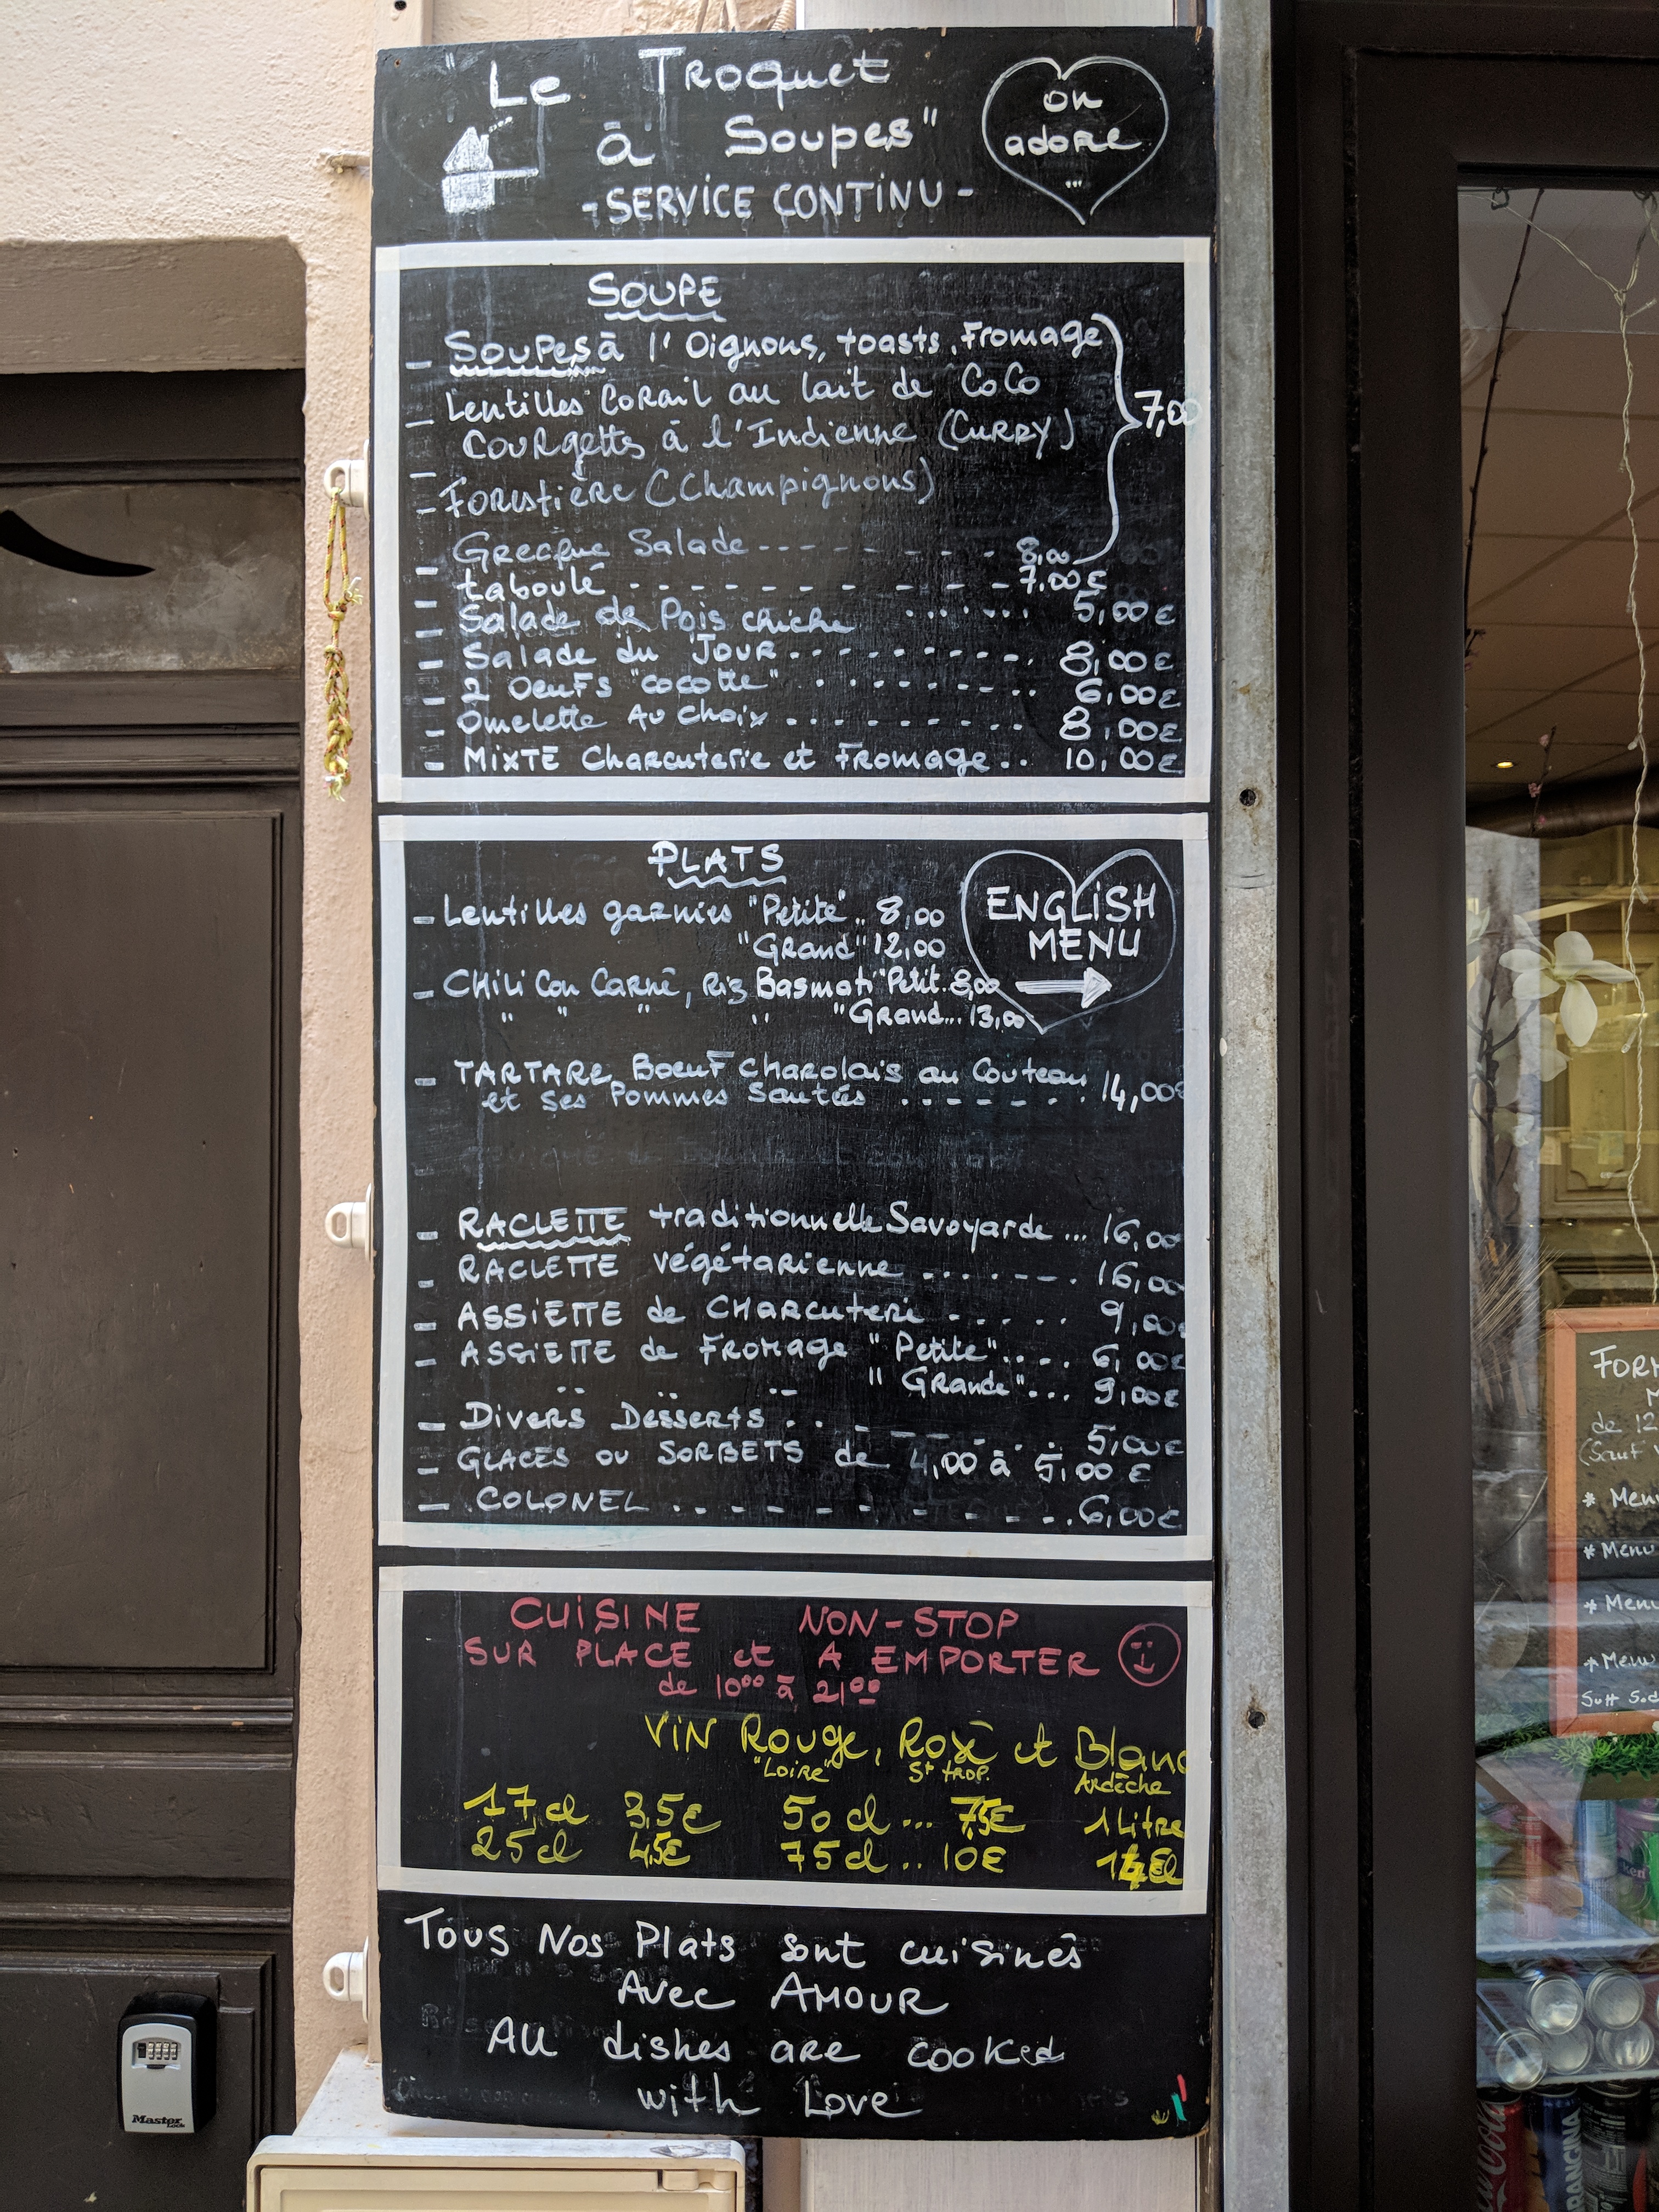 "Le Troquet
à Soupes"
- SERVICE CONTINU -
on
adore
...
SOUPE
- SOUPES à l'Oignons, toasts, Fromage
- Lentilles CORAIL au lait de CoCo
7,00
- COURgettes à l'Indienne (CURRY)
- FORestière (Champignons)
- Grecque Salade - - - - - - - 8,00
- taboulé - - - - - - - - - - 7,00€
- Salade de Pois chiche ...... 5,00€
- Salade du JOUR.......... 8,00€
- 2 OeuFs "cocotte" .......... 6,00€
- Omelette Au choix .......... 8,00€
- MiXTE Charcuterie et Fromage.. 10,00€
PLATS
- Lentilles garnies "Petite".. 8,00
"Grand" 12,00
- CHiLi Con Carné, Riz Basmati "Petit. 8,00
" " " " "Grand... 13,00
ENGLiSH
MENU
- TARTARE Boeuf Charolais au Couteau 14,00€
et ses Pommes Sautées . - - - - .
- RACLETTE traditionnelle Savoyarde ... 16,00
- RACLETTE végétarienne ....... 16,00
- ASSiETTE de CHARcuterie ...... 9,00€
- ASSiETTE de Fromage "Petite".... 6,00€
" " " " GRande"... 9,00€
- Divers Desserts . . - - - - . . 5,00€
- GLACES OU SORBETS de 4,00 à 5,00 €
- COLONEL . . - - - - - - - . 6,00€
CUiSiNE NON-STOP
SUR PLACE et A EMPORTER
de 10°° à 21°°
ViN Rouge, Rosé et Blanc
"Loire" St trop. Ardèche
17 cl 3,5€ 50 cl ... 7,5€ 1 Litre
25 cl 4,5€ 75 cl .. 10€
Tous Nos Plats sont cuisinés
Avec AMOUR
All dishes are cooked
with Love
Master
Lock
de 12
* Menu
* Menu
* Menu
* Menu